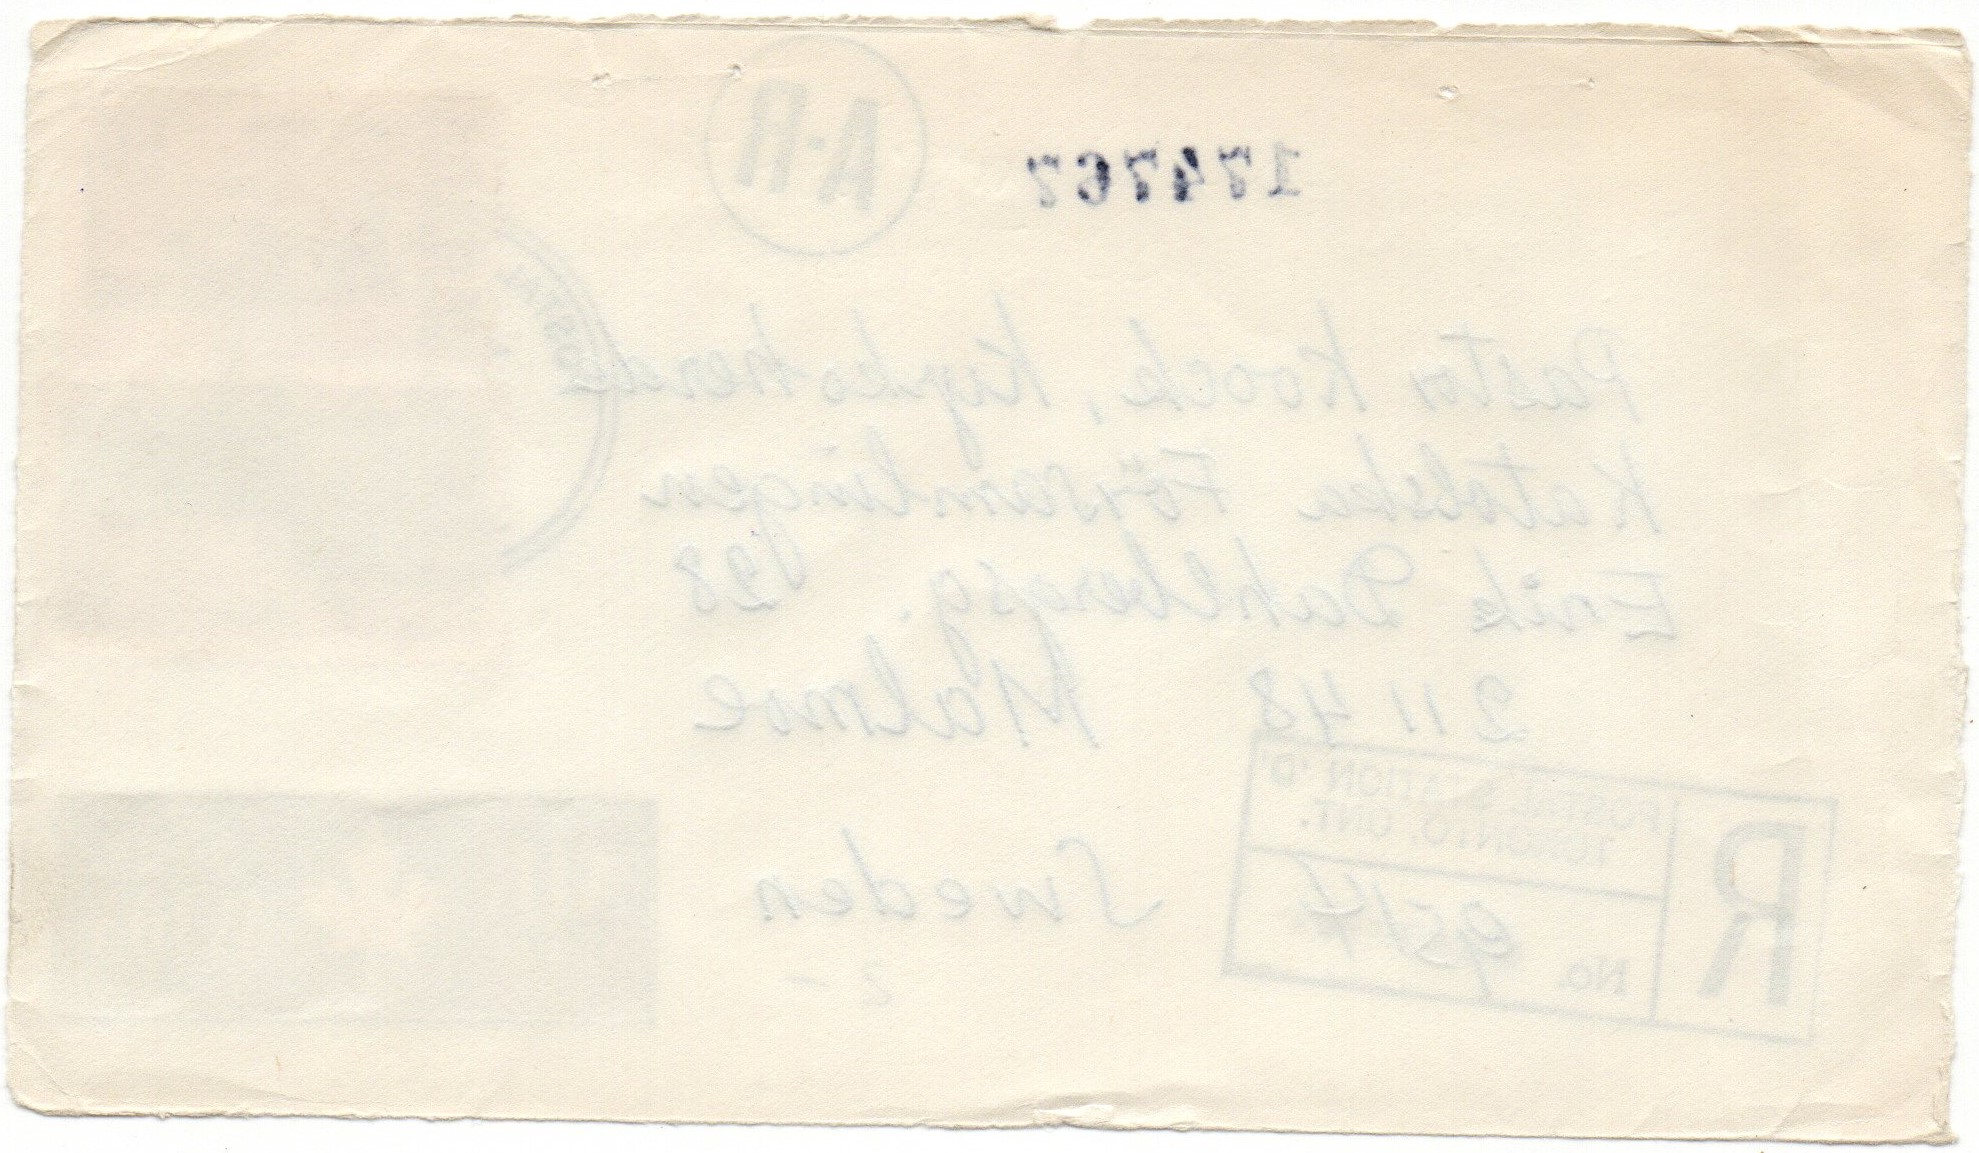 A·R
174767
Pastor Koock, Kyrkoherde
Katolska Församlingen
Erik Dahlbergsg. 28
211 48 Malmoe
Sweden
R
POSTAL STATION 'D'
TORONTO, ONT.
No.